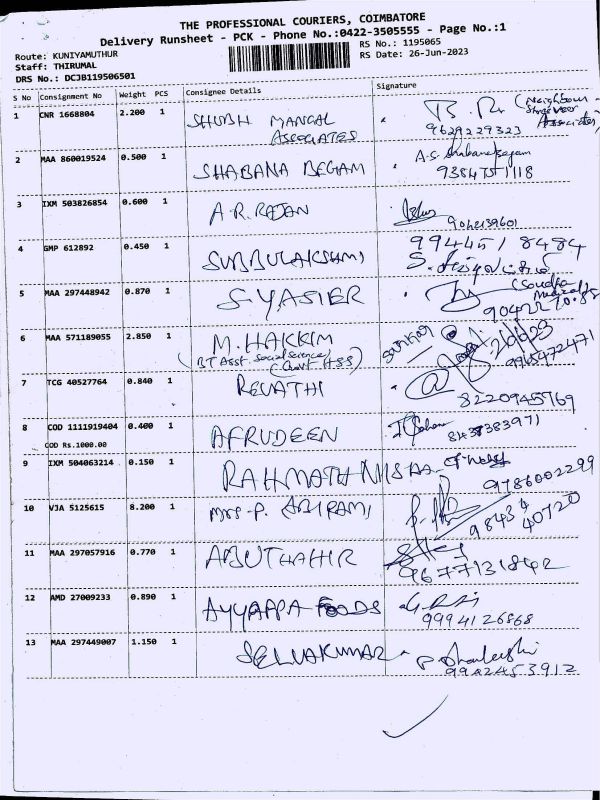 THE PROFESSIONAL COURIERS, COIMBATORE
Delivery Runsheet - PCK - Phone No.:0422-3505555 - Page No.:1
Route: KUNIYAMUTHUR
RS No.: 1195065
Staff: THIRUMAL
RS Date: 26-Jun-2023
DRS No.: DCJB119506501
S No Consignment No Weight PCS Consignee Details Signature
1 CNR 1668804 2.200 1 SHUBH MANGAL ASSOCIATES
(Neighbour
9629229323
2 MAA 860019524 0.500 1 SHABANA BEGAM
9384751118
3 IXM 503826854 0.600 1 A.R. RAJAN
9042139601
4 GMP 612892 0.450 1 SUBBULAKSHMI
9944518484
5 MAA 297448942 0.870 1 S-YASIER
6 MAA 571189055 2.850 1 M. HAKKIM
(BT Asst. Social Science,
Govt. HSS)
9965472471
7 TCG 40527764 0.840 1 REVATHI
8220945769
8 COD 1111919404 0.400 1 AFRUDEEN
COD Rs.1000.00
8437383971
9 IXM 504063214 0.150 1 RAHMATH NISAA
9786002299
10 VJA 5125615 8.200 1 Mrs-P. ABIRAMI
98434
40720
11 MAA 297057916 0.770 1 ABUTHAHIR
9677131842
12 AMD 27009233 0.890 1 AYYAPPA FOODS
9994126868
13 MAA 297449007 1.150 1 SELVAKUMAR
9942453912